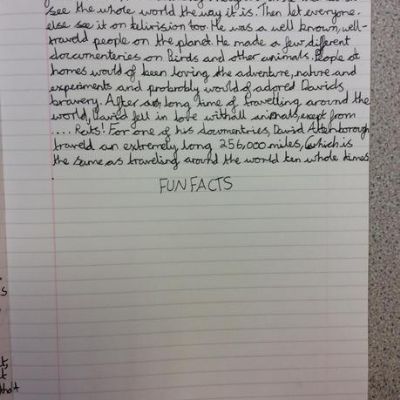 see the whole world the way it is. Then let everyone
else see it on telivision too. He was a well known, well-
traveld people on the planet. He made a few different
documenteries on Birds and other animals. People at
homes would of been loving the adventure, nature and
experiments and probobly would of adored Davids
bravery. After a long time of travelling around the
world, David fell in love with all animals, exept from
.... Rats! For one of his documentries, David Attenborough
traveld an extremely long 256,000 miles, (which is
the same as traveling around the world ten whole times
.
FUN FACTS
s
ts
t